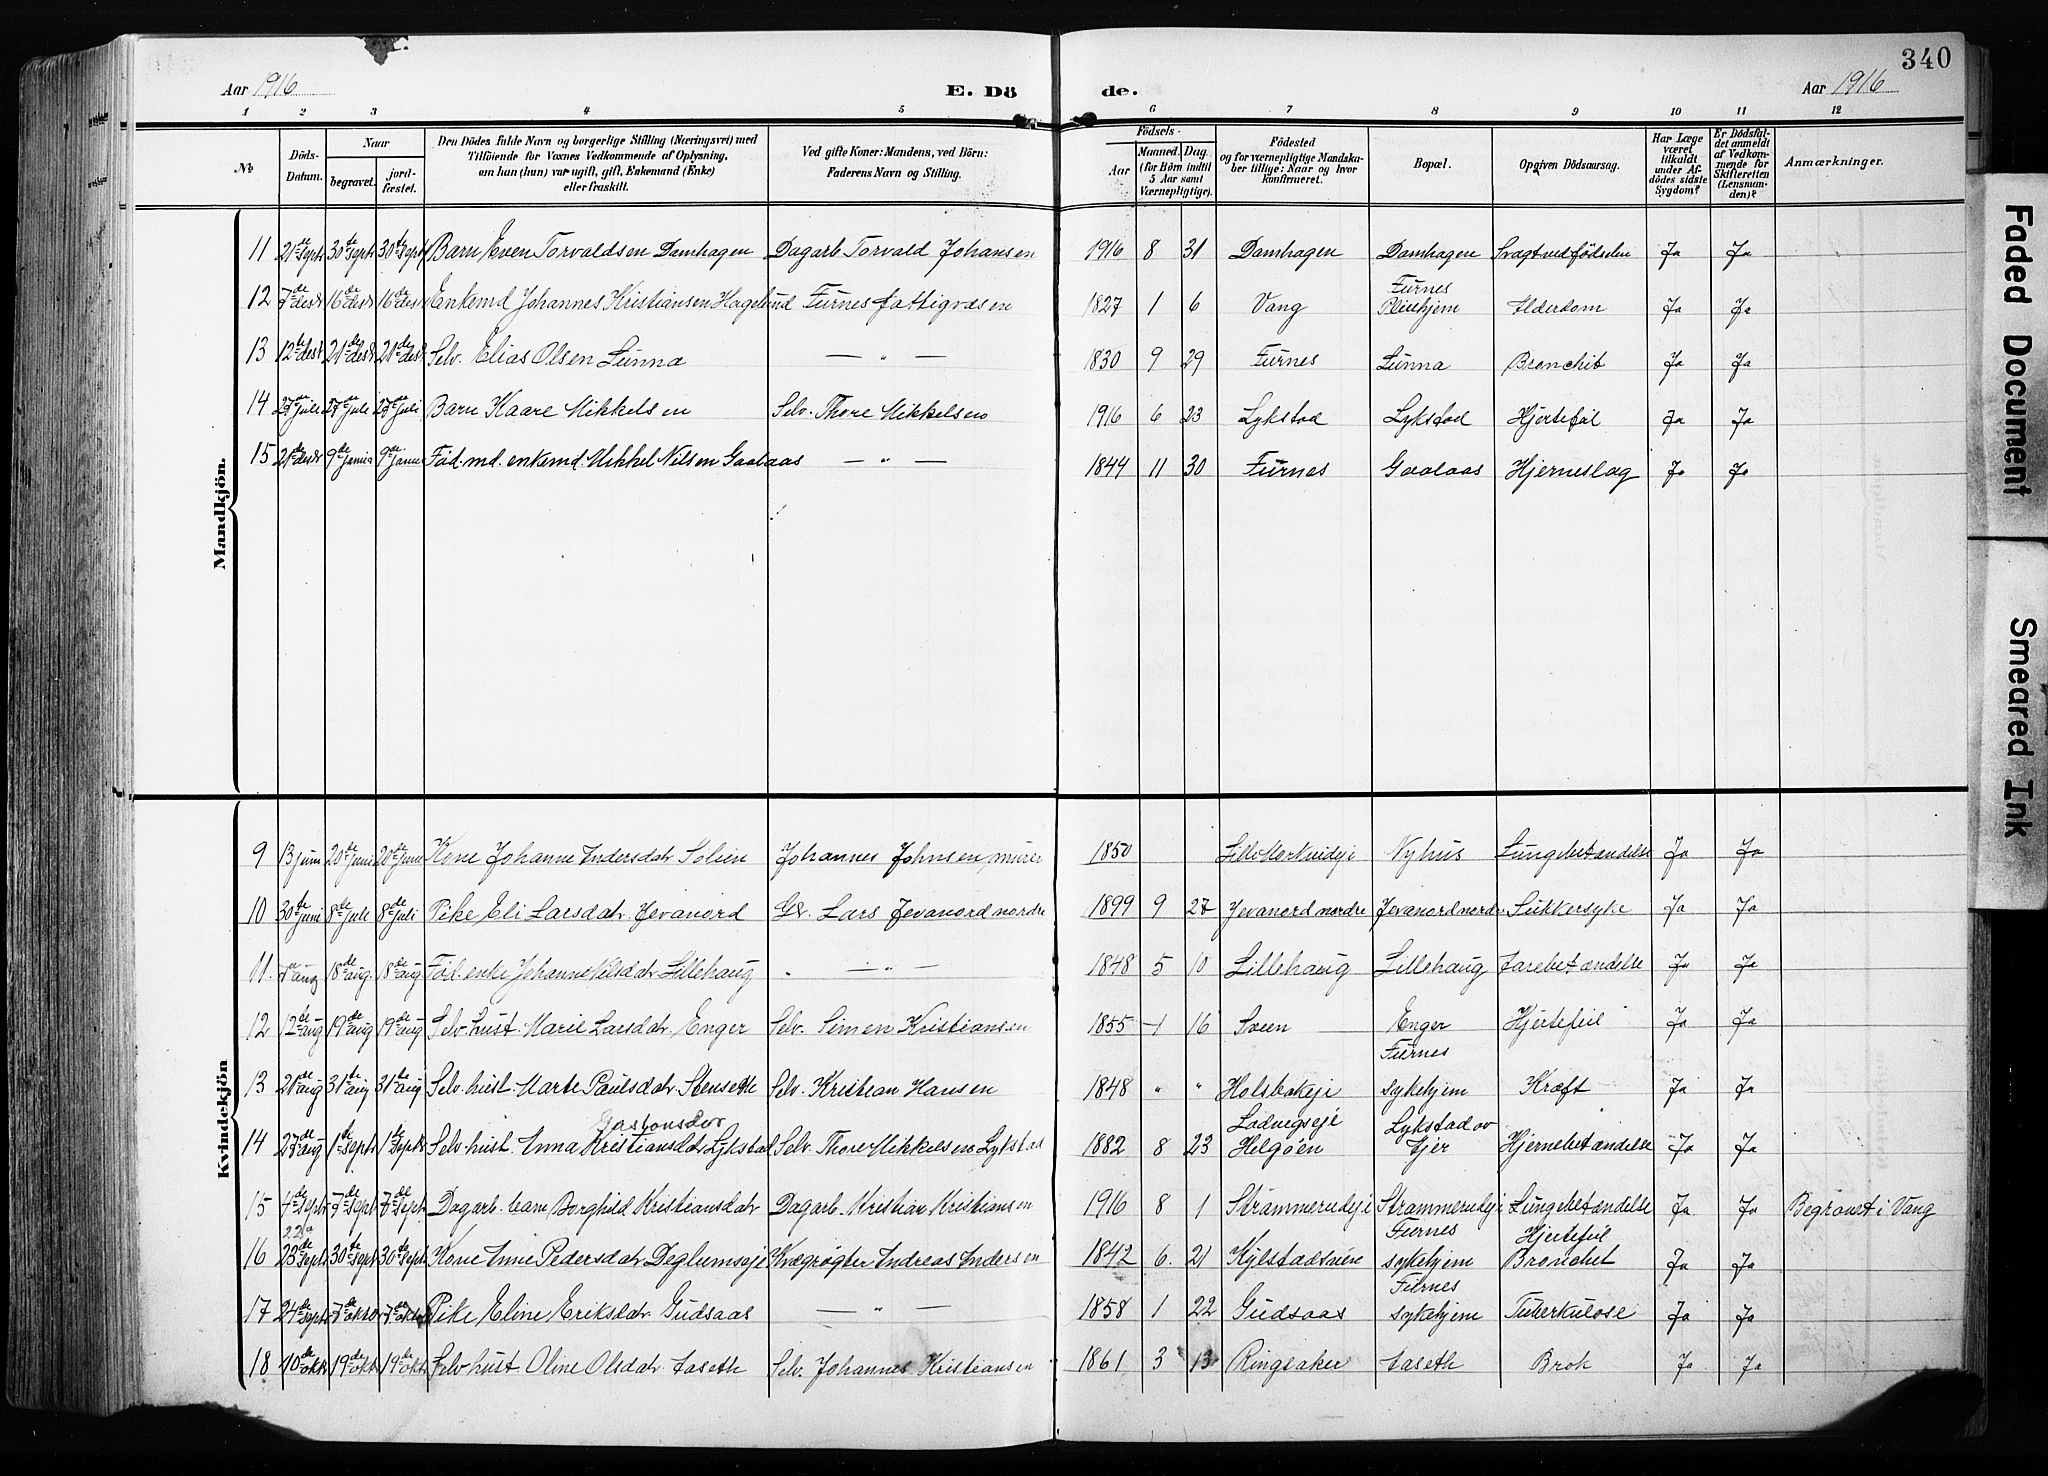 340
Aar 1916 E. Dö de. Aar 1916
1 2 3 4 5 6 7 8 9 10 11 12
No
Döds-Datum.
Naar
begravet.
jord-fæstet.
Den Dödes fulde Navn og borgerlige Stilling (Næringsvei) med
Tilföiende for Voxnes Vedkommende af Oplysning,
om han (hun) var ugift, gift, Enkemand (Enke)
eller fraskilt.
Ved gifte Koner: Mandens, ved Börn:
Faderens Navn og Stilling.
Födsels-
Aar
Maaned. Dag.
(for Börn indtil
5 Aar samt
Værnepligtige).
Födested
og for værnepligtige Mandska-
ber tillige: Naar og hvor
konfirmeret.
Bopæl.
Opgiven Dödsaarsag.
Har Læge
været
tilkaldt
under Af-
dödes sidste
Sygdom?
Er Dödsfal-
det anmeldt
af Vedkom-
mende for
Skifteretten
(Lensman-
den)?
Anmærkninger.
Mandkjön.
11 21de septr 30te septr 30te septr Barn Even Torvaldsen Damhagen Dagarb. Torvald Johansen 1916 8 31 Damhagen Damhagen Svagt ved födselen Ja Ja
12 7de desr 16de desr 16de desr Enkemd Johannes Kristiansen Hagelund Furnes fattigvæsen 1827 1 6 Vang Furnes Pleiehjem Alderdom Ja Ja
13 12te desr 21de desr 21de desr Selv. Elias Olsen Sunna — " — 1830 9 29 Furnes Sunna Bronchit Ja Ja
14 27de juli juli juli Barn Kaare Mikkelsen Selv. Thore Mikkelsen 1916 6 23 Lykstad Lykstad Hjertefeil Ja Ja
15 21de desr 9de januar 9de januar Föd. md. enkemd. Mikkel Nilsen Gaalaas — " — 1844 11 30 Furnes Gaalaas Hjerneslag Ja Ja
Kvindekjön
9 13 juni 20de juni 20de juni Kone Johanne Andersdatr Solien Johannes Johnsen, murer 1850 Nyhus Lungebetændelse Ja Ja
10 30te juni 8de juli 8de juli Pike Eli Larsdatr Jevanord G. Lars Jevanord nordre 1899 9 27 Jevanord nordre Jevanord nordr. Sukkersyke Ja Ja
11. aug 18de aug. 18de aug Föd. enke Johanne Lillehaug — " — 1848 5 10 Lillehaug Lillehaug Aarebetændelse Ja Ja
12 12te aug 19de aug 19de aug Selv. hust. Marie Larsdatr Enger Selv. Simen Kristiansen 1855 1 16 Sveen Enger Hjertefeil Ja Ja
13 21de aug 31te aug 31te aug Selv. hust. Marte Paulsdatr Stenseth Selv. Kristian Hansen 1848 " " Holsbakeje Furnes sykehjem Kræft Ja Ja
14 27de aug 1ste septr 1ste septr Selv. hust. Anna Kristiansdatr Lykstad Selv. Thore Mikkelsen Lykstad 1882 8 23 Helgöen Lykstad öv Ejer Hjernebetændelse Ja Ja
15 4de septr 7de septr 7de septr Dagarb. barn Borghild Kristiansdatr Dagarb. Kristian Kristiansen 1916 8 1 Strammerudeje Strammerudeje Lungebetændelse Ja Ja Begravet i Vang
16 septr 30te septr 30te septr Kone Anne Pedersdatr Deglumseje Kvægrögter Andreas Andersen 1842 6. 21 Furnes sykehjem Hjertefeil Bronchit Ja Ja
17 24de septr 7de oktbr 7de oktbr Pike Eline Eriksdatr Gudsaas — " — 1858 1 22 Gudsaas Furnes sykehjem Tuberkulose Ja Ja
18 10de oktr 19de oktr 19de oktr Selv. hust Oline Olsdatr Aaseth Selv. Johannes Kristiansen 1861 3 13 Ringsaker Aaseth Brok Ja Ja
Faded Document
Smeared Ink